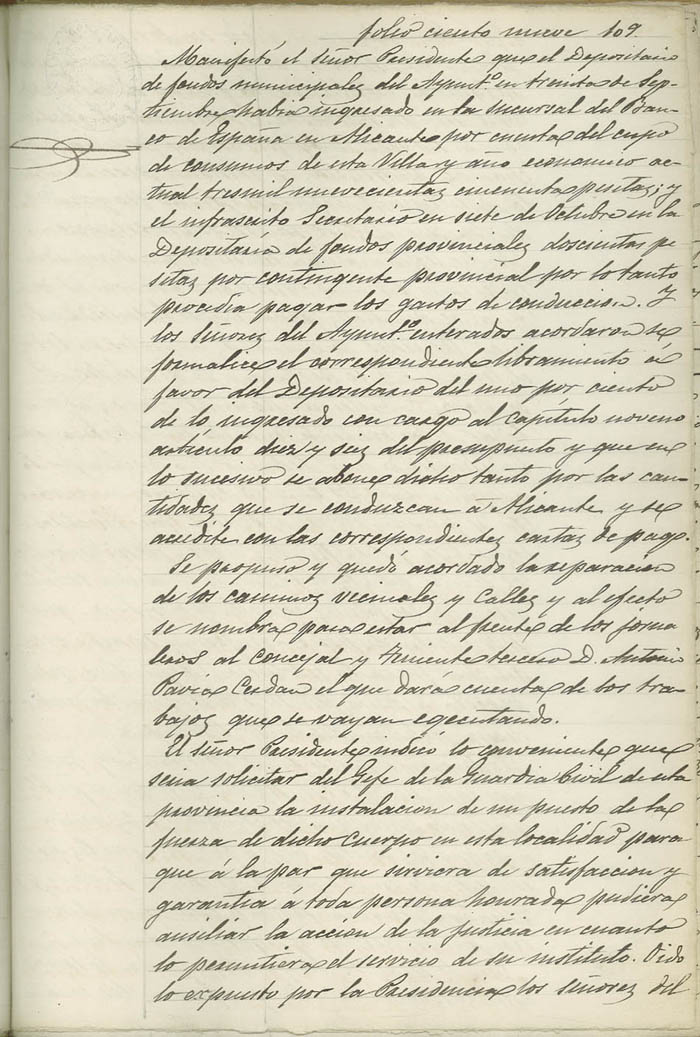 folio ciento nueve 109.
Manifestó el señor Presidente que el Depositario
de fondos municipales del Ayunt.º en treinta de Sep-
tiembre habia ingresado en la sucursal del Ban-
co de España en Alicante por cuenta del cupo
de consumos de esta Villa y año economico ac-
tual tresmil nuevecientas cincuenta pesetas; y
el infrascrito Secretario en siete de Octubre en la
Depositaría de fondos provinciales doscientas pe-
setas por contingente provincial por lo tanto
procedia pagar los gastos de conduccion. Y
los Señores del Ayunt.º enterados acordaron se
formalice el correspondiente libramiento á
favor del Depositario del uno por ciento
de lo ingresado con cargo al capítulo noveno
artículo diez y seis del presupuesto y que en
lo sucesivo se abone dicho tanto por las can-
tidades que se conduzcan á Alicante y se
acredite con las correspondientes cartas de pago.
Se propuso y quedó acordado la reparacion
de los caminos vecinales y Calles y al efecto
se nombra para estar al frente de los jorna-
leros al concejal y Teniente tercero D. Antonio
Pavia Cerdan el que dará cuenta de los tra-
bajos que se vayan egecutando.
El señor Presidente indicó lo conveniente que
seria solicitar del Gefe de la Guardia Civil de esta
provincia la instalacion de un puesto de la
fuerza de dicho Cuerpo en esta localidad para
que á la par que sirviera de satisfaccion y
garantia á toda persona honrada pudiera
auxiliar la accion de la justicia en cuanto
lo permitiera el servicio de su instituto. Oido
lo expuesto por la Presidencia los Señores del